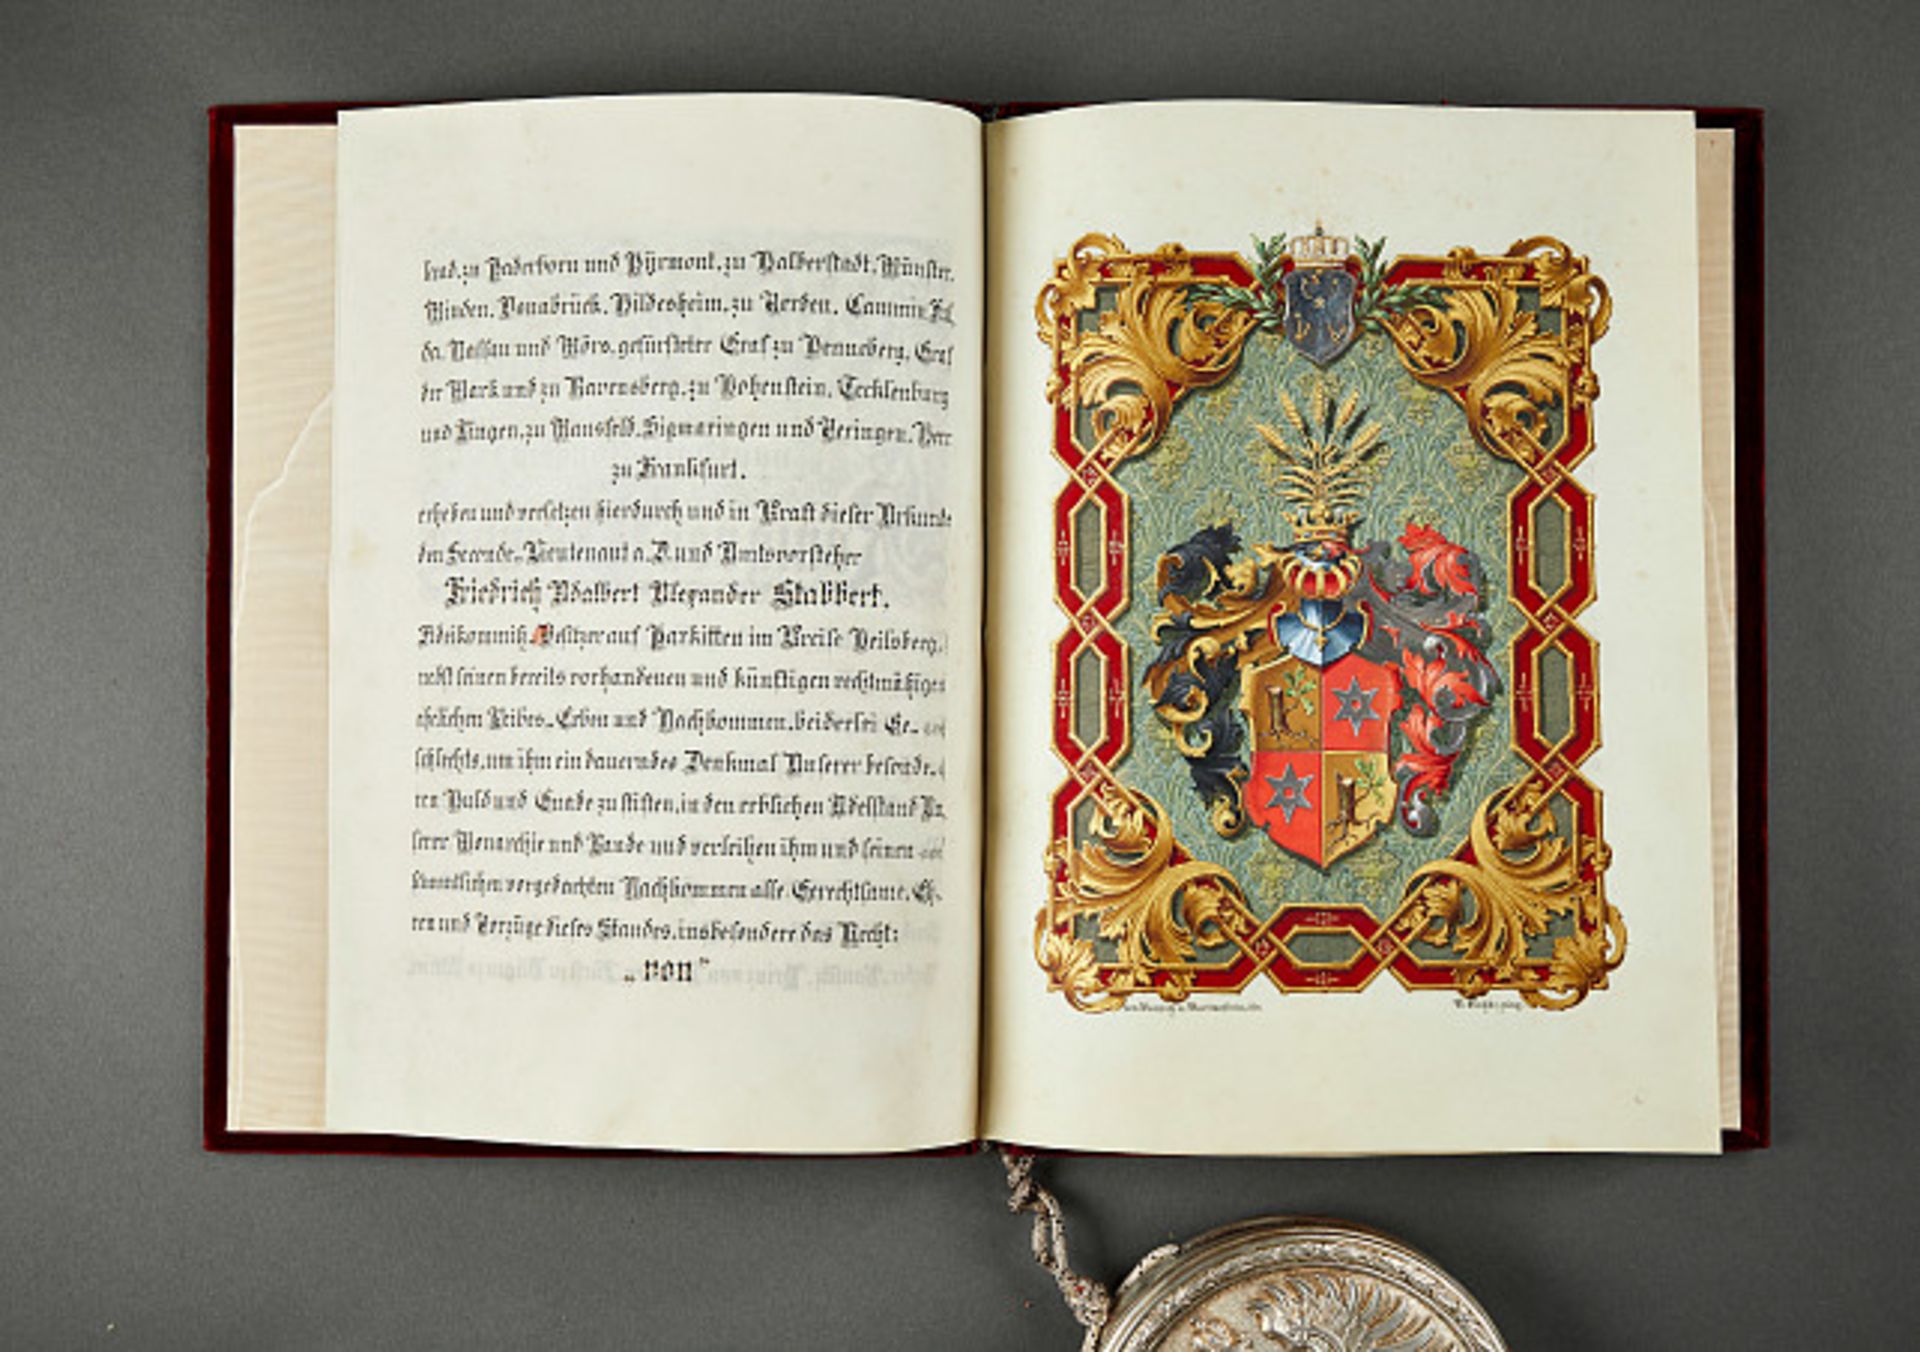 srad, zu Paderborn und Pyrmont, zu Halberstadt, Münster,
Minden, Osnabrück, Hildesheim, zu Verden, Cammin, Ful,
da, Nassau und Mörs, gefürsteter Graf zu Henneberg, Graf
der Mark und zu Ravensberg, zu Hohenstein, Tecklenburg
und Lingen, zu Mansfeld, Sigmaringen und Veringen, Herr
zu Frankfurt.
erheben und versetzen hierdurch und in Kraft dieser Urkunde
den Seconde-Lieutenant a. D. und Amtsvorsteher
Friedrich Adalbert Alexander Stabbert,
Fideikommiß-Besitzer auf Parkitten im Kreise Heilsberg,
nebst seinen bereits vorhandenen und künftigen rechtmäßigen
ehelichen Leibes-Erben und Nachkommen, beiderlei Ge-
schlechts, um ihm ein dauerndes Denkmal Unserer besonde-
ren Huld und Gnade zu stiften, in den erblichen Adelstand Un,
serer Monarchie und Lande und verleihen ihm und seinen
sämmtlichen vorgedachten Nachkommen alle Gerechtsame, Eh-
ren und Vorzüge dieses Standes, insbesondere das Recht:
„von"